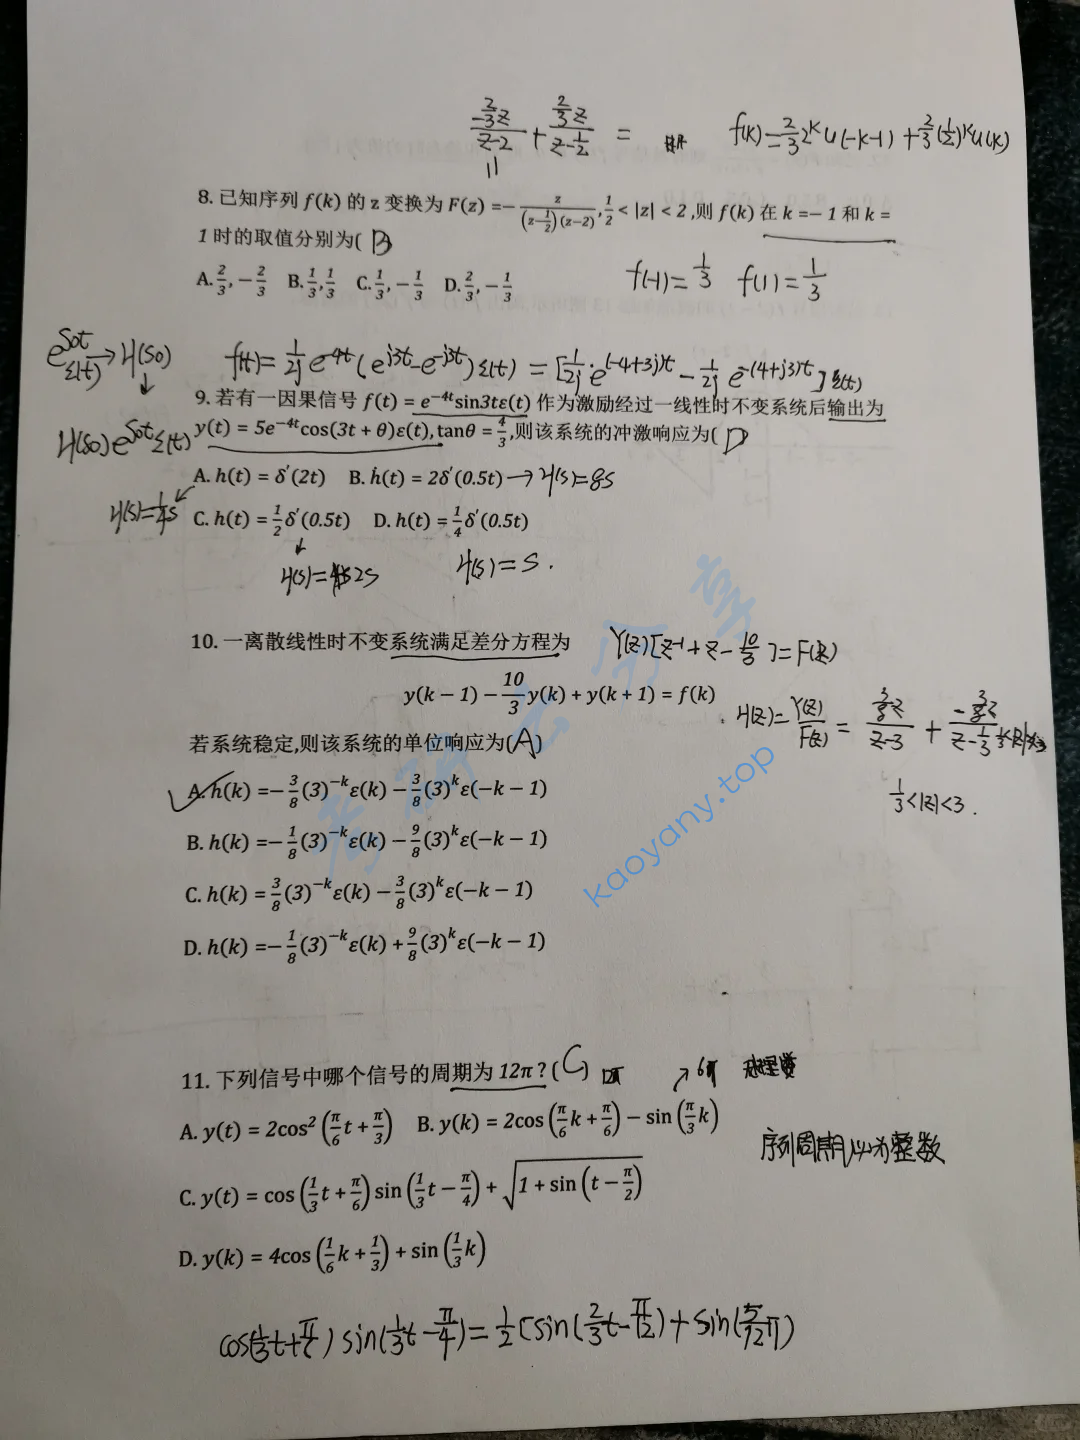 -2/3z/(z-2) + 2/3z/(z-1/2) = f(k)=2/3 2^k u(-k-1) + 2/3(1/2)^k u(k)
8. 已知序列 f(k) 的 z 变换为 F(z) =- z/((z-1/2)(z-2)), 1/2 < |z| < 2 ,则 f(k) 在 k =- 1 和 k =
1 时的取值分别为( B
A. 2/3, - 2/3 B. 1/3, 1/3 C. 1/3, - 1/3 D. 2/3, - 1/3
f(-1)= 1/3 f(1)= 1/3
e^{s0t}ε(t) → H(s0)
f(t)= 1/2j e^{-4t}(e^{j3t}-e^{-j3t})ε(t) = [1/2j·e^{(-4+3j)t} - 1/2j e^{-(4+j3)t}]ε(t)
9. 若有一因果信号 f(t) = e^{-4t}sin3tε(t) 作为激励经过一线性时不变系统后输出为
H(s0)e^{s0t}ε(t)
y(t) = 5e^{-4t}cos(3t + θ)ε(t), tanθ = 4/3 ,则该系统的冲激响应为( D
A. h(t) = δ′(2t) B. h(t) = 2δ′(0.5t) → H(s)=8s
H(s)=1/4s
C. h(t) = 1/2 δ′(0.5t) D. h(t) = 1/4 δ′(0.5t)
H(s)= 2s H(s)=s.
10. 一离散线性时不变系统满足差分方程为
Y(z)[z^{-1}+z-10/3]=F(z)
y(k - 1) - 10/3 y(k) + y(k + 1) = f(k)
H(z)= Y(z)/F(z) = 3/8z/(z-3) + -3/8z/(z-1/3)
若系统稳定,则该系统的单位响应为(A)
A. h(k) =- 3/8 (3)^{-k}ε(k) - 3/8 (3)^kε(-k - 1)
1/3<|z|<3.
B. h(k) =- 1/8 (3)^{-k}ε(k) - 9/8 (3)^kε(-k - 1)
C. h(k) = 3/8 (3)^{-k}ε(k) - 3/8 (3)^kε(-k - 1)
D. h(k) =- 1/8 (3)^{-k}ε(k) + 9/8 (3)^kε(-k - 1)
kaoyany.top
11. 下列信号中哪个信号的周期为 12π ? (C) 12π 6π
A. y(t) = 2cos²(π/6 t + π/3) B. y(k) = 2cos(π/6 k + π/6) - sin(π/3 k)
序列周期必为整数
C. y(t) = cos(1/3 t + π/6) sin(1/3 t - π/4) + √(1 + sin(t - π/2))
D. y(k) = 4cos(1/6 k + 1/3) + sin(1/3 k)
cos(1/3t+π/6) sin(1/3t-π/4)= 1/2[sin(2/3t-π/12)+sin(5/12π)